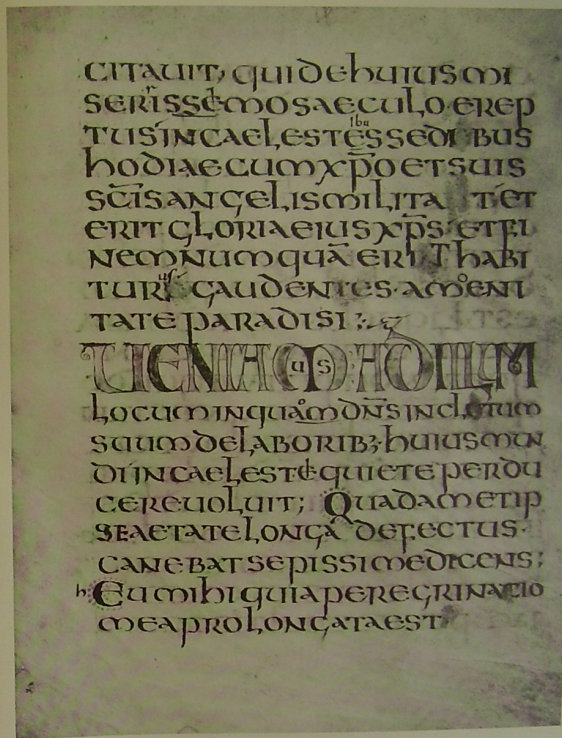 CITAUIT; quidehuiusmi
SERISSẽMOSAECULO·EREP
TUSINCAELESTESSEDIBUS
hODIAECUMXP̄OETSUIS
SC̄ISANGELISMILITA TET
ERIT GLORIAEIUSXP̄S·ETFI
NEMNUMQUĀ ERIT habI
TURUS GAUDENTES·AMOENI
TATE PARADISI
UENIAMUS·ADILLUM
LOCUMINQUAMDN̄SINCLOTUM
SUUMDELABORIB; hUIUSMUN
DIINCAELESTēQUIETEPERDU
CEREUOLUIT; QUADAMETIP
SEAETATELONGA DEFECTUS·
CANEBATSEPISSIMEDICENS;
h EUMIhIQUIAPEREGRINATIO
MEAPROLONGATAEST